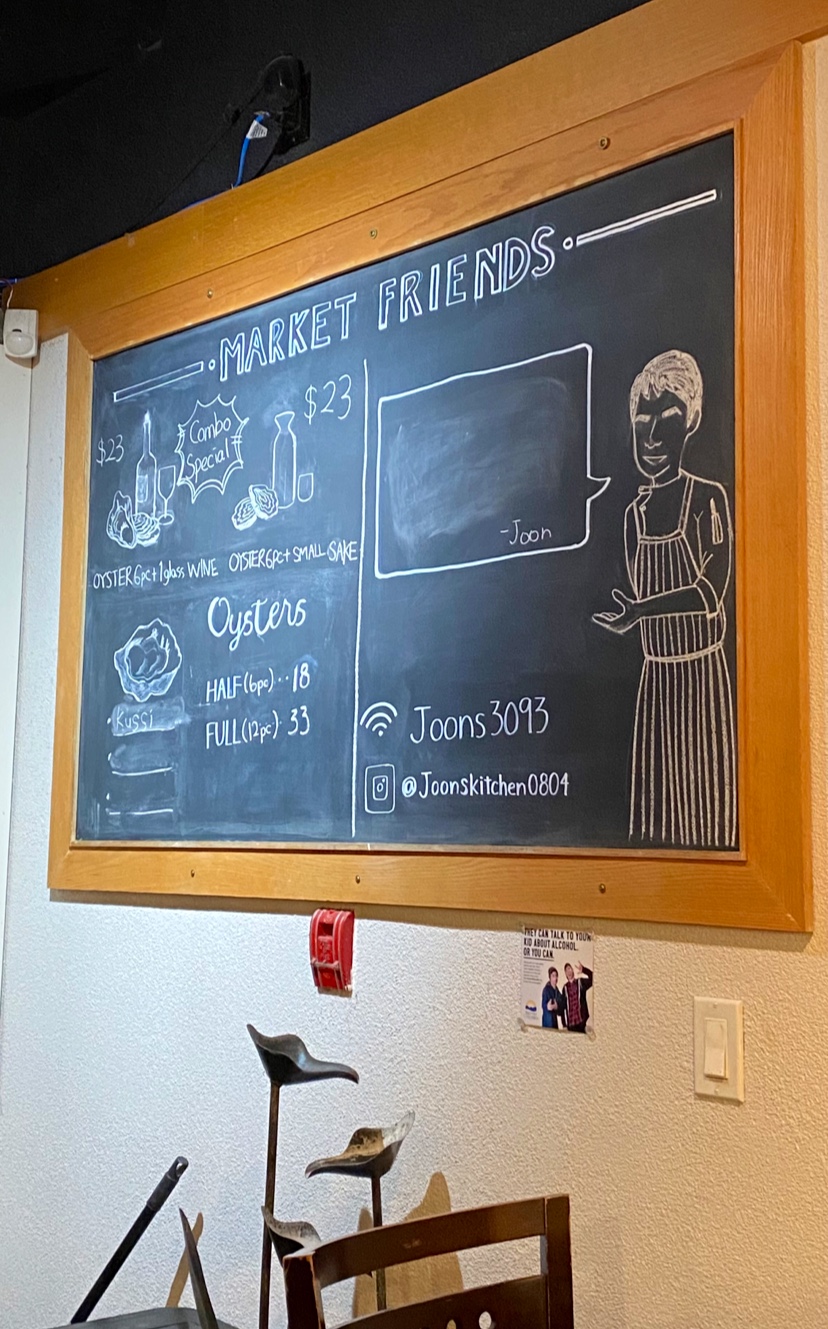 MARKET FRIENDS
$23
Combo
Special
$23
OYSTER 6pc + 1glass WINE
OYSTER 6pc + SMALL SAKE
Oysters
HALF (6pc) ·· 18
FULL (12pc) · 33
Kussi
-Joon
Joons3093
@Joonskitchen0804
THEY CAN TALK TO YOUR
KID ABOUT ALCOHOL.
OR YOU CAN.